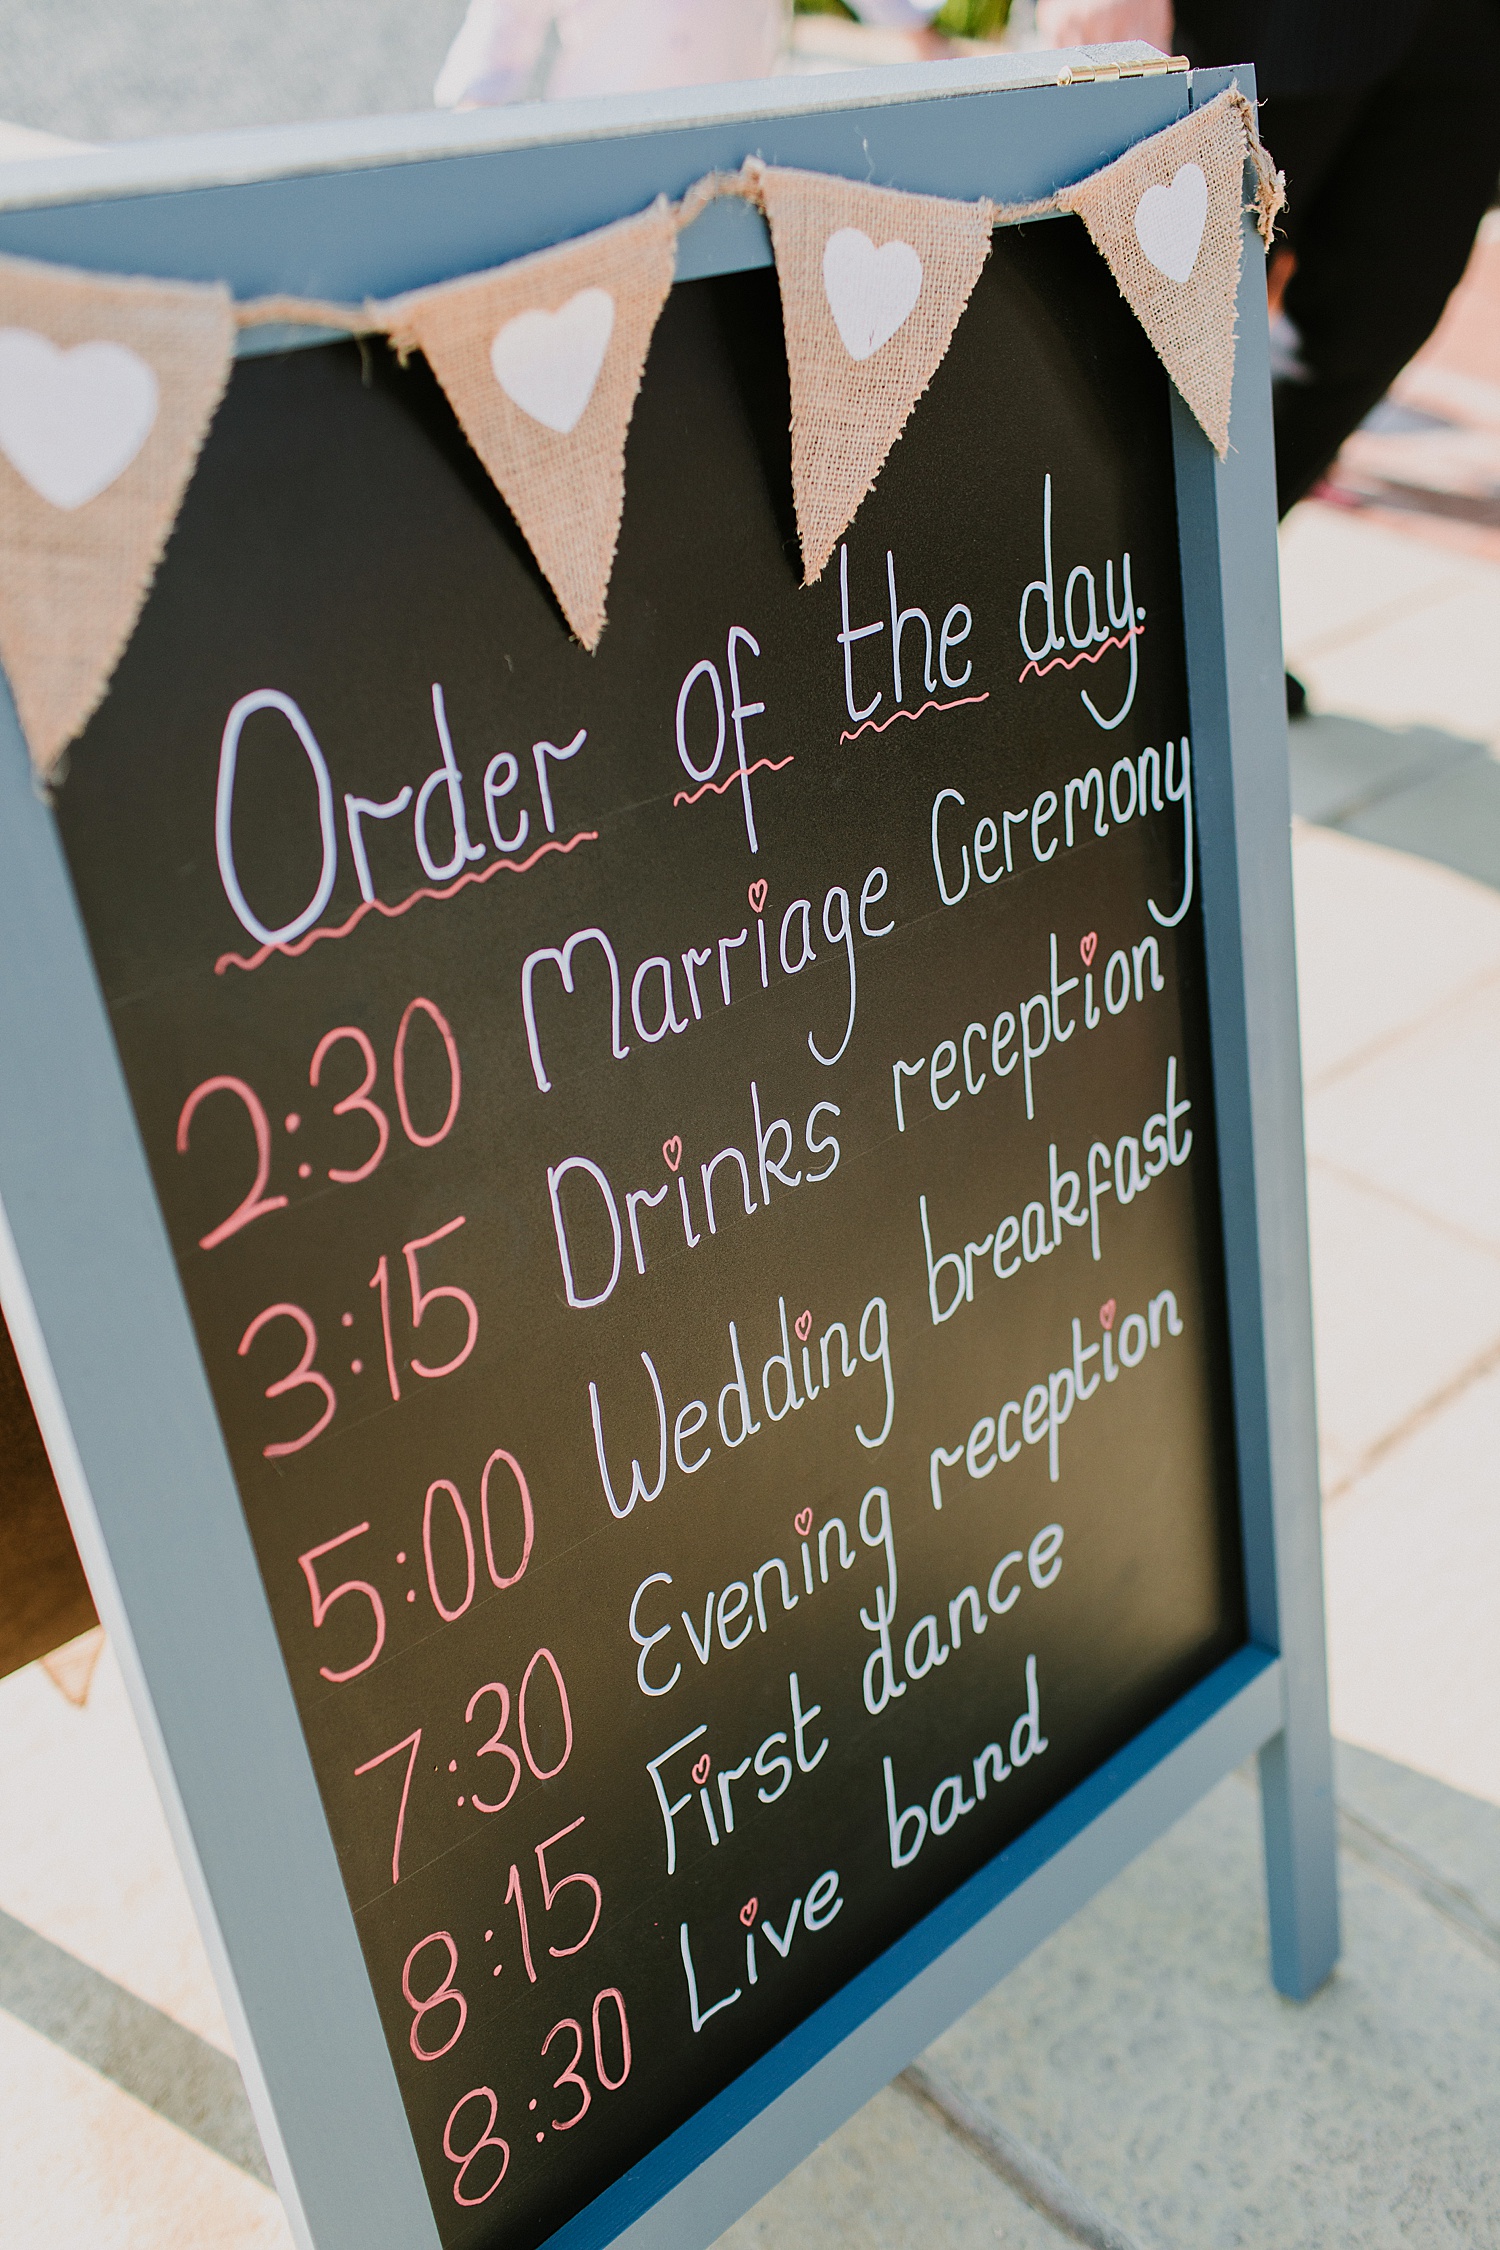 Order of the day.
2:30 Marriage Ceremony
3:15 Drinks reception
5:00 Wedding breakfast
7:30 Evening reception
8:15 First dance
8:30 Live band